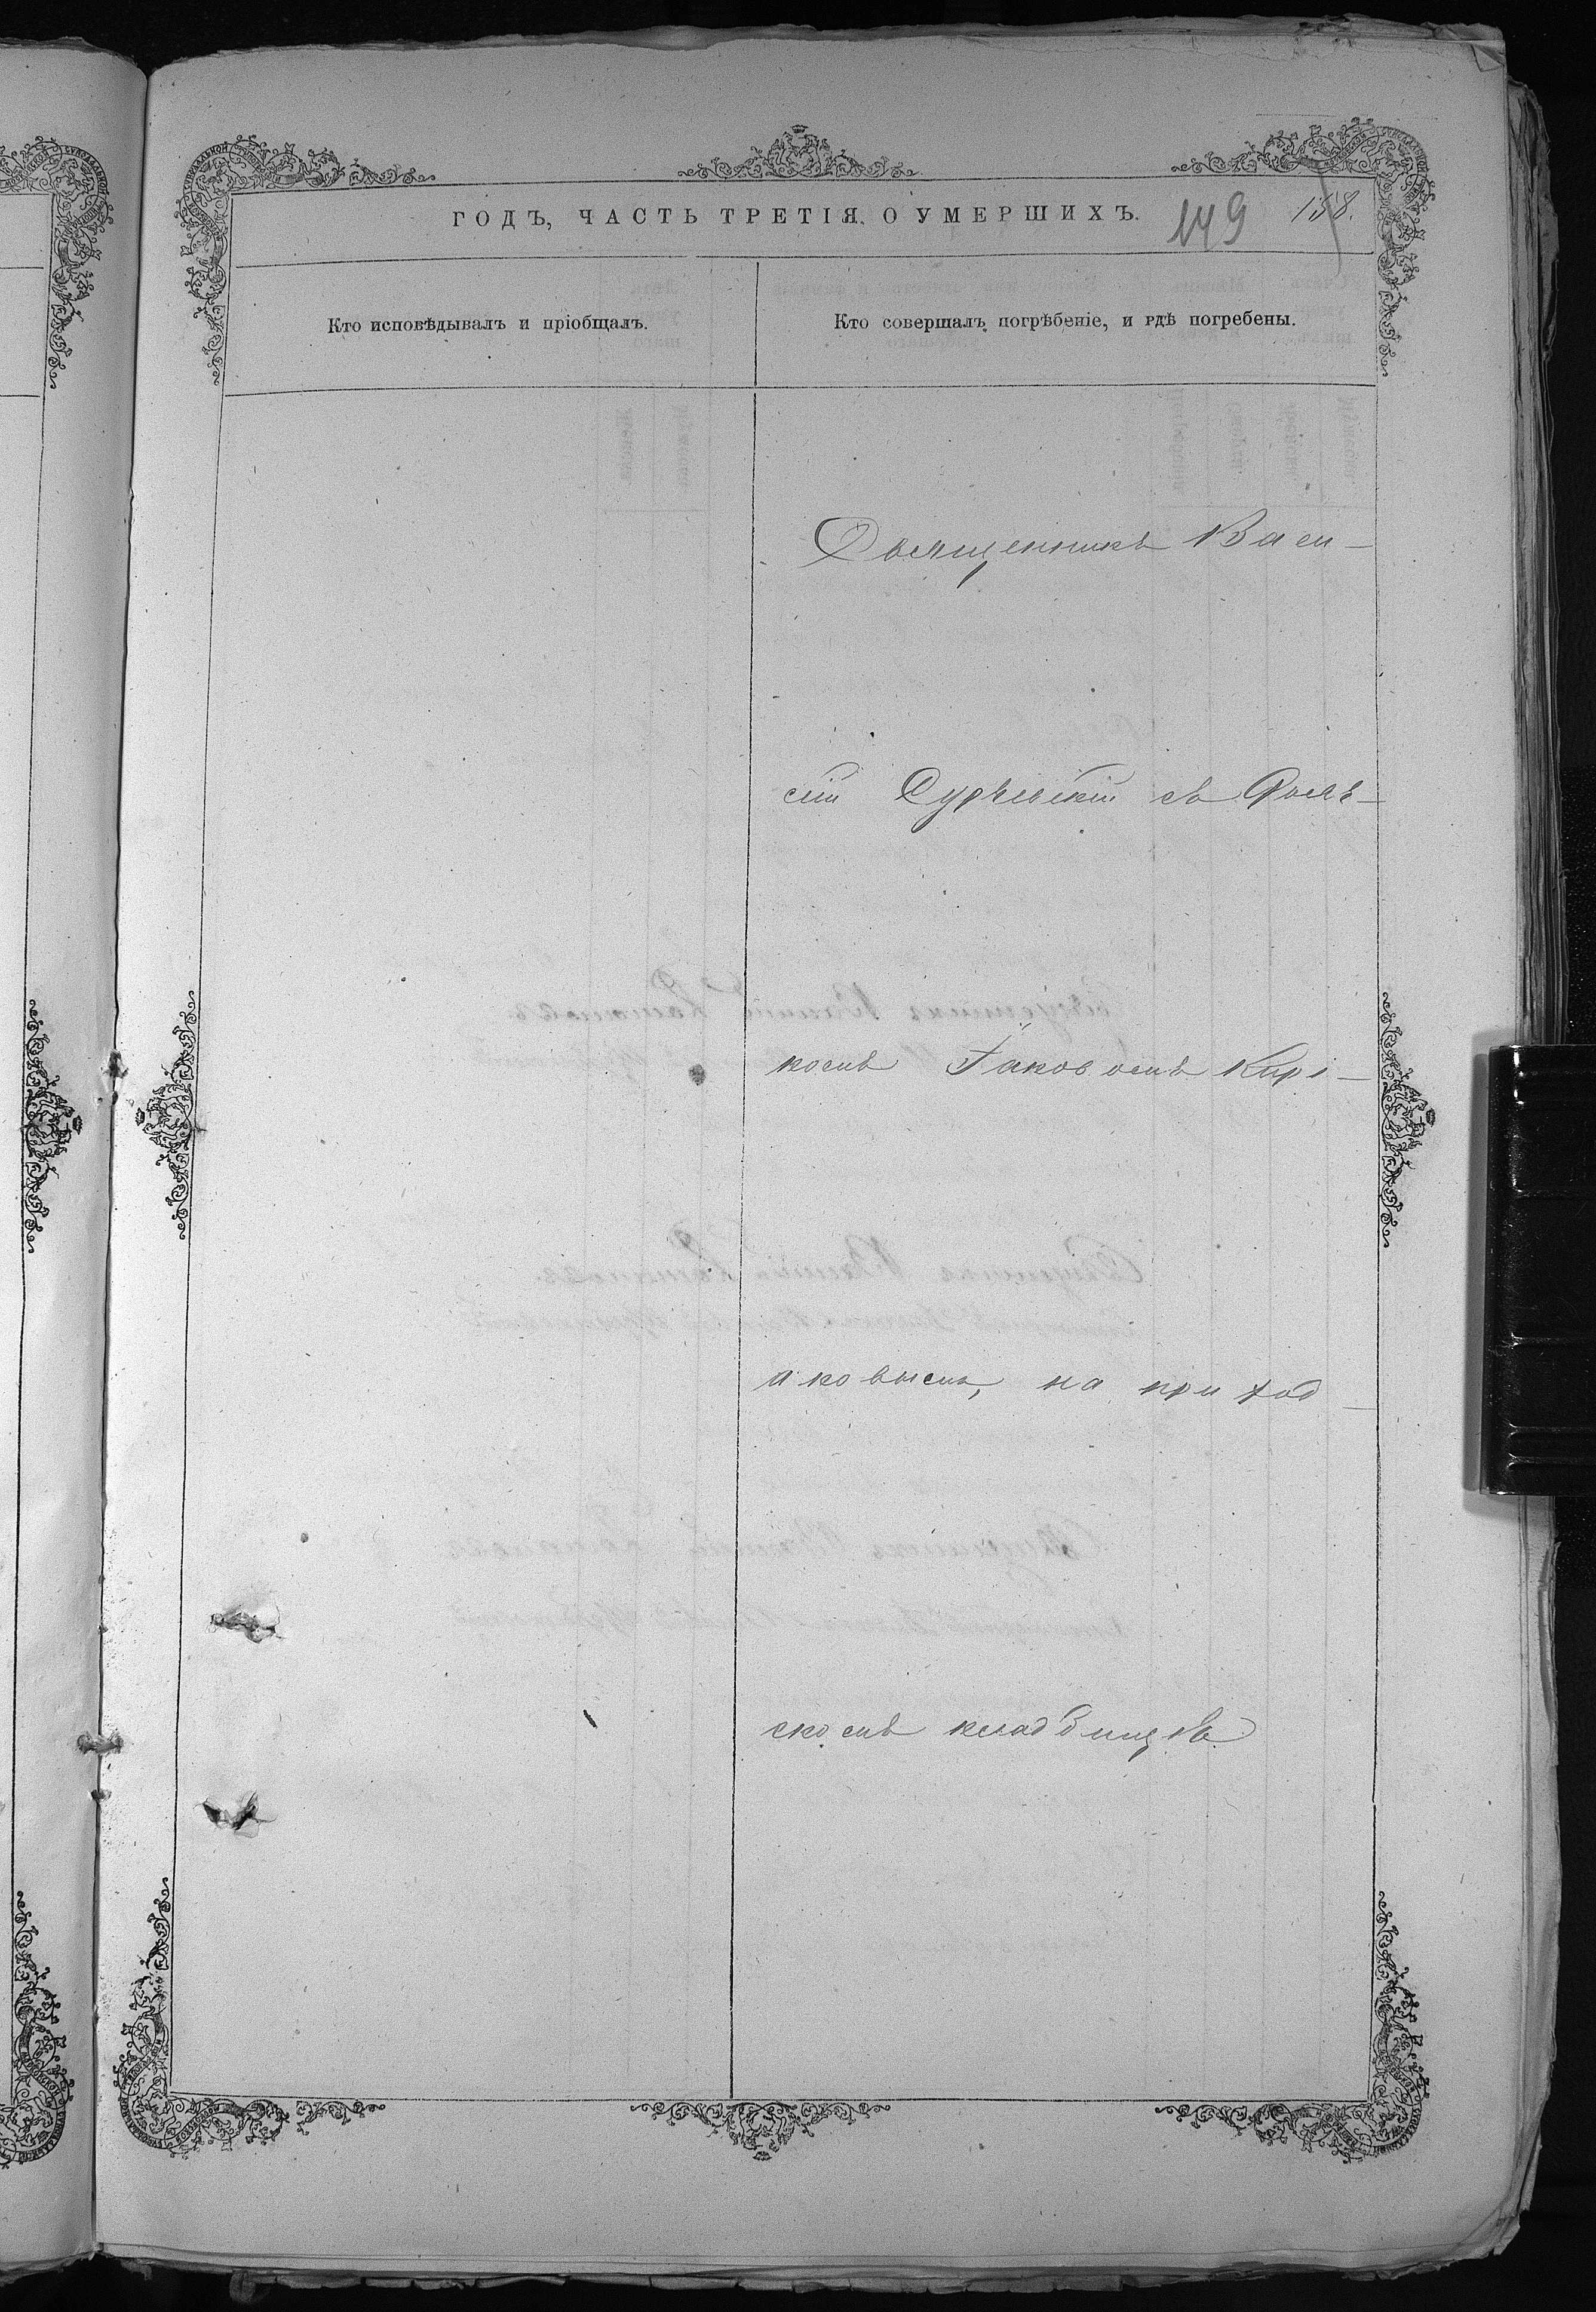 ГОДЪ, ЧАСТЬ ТРЕТІЯ. О УМЕРШИХЪ.
149 158.
Кто исповѣдывалъ и пріобщалъ.
Кто совершалъ погрѣбеніе, и гдѣ погребены.
Священникъ Васи-
лій съ Фель-
комъ Іаковомъ Кирі-
аковымъ, на приход-
скомъ кладбищѣ